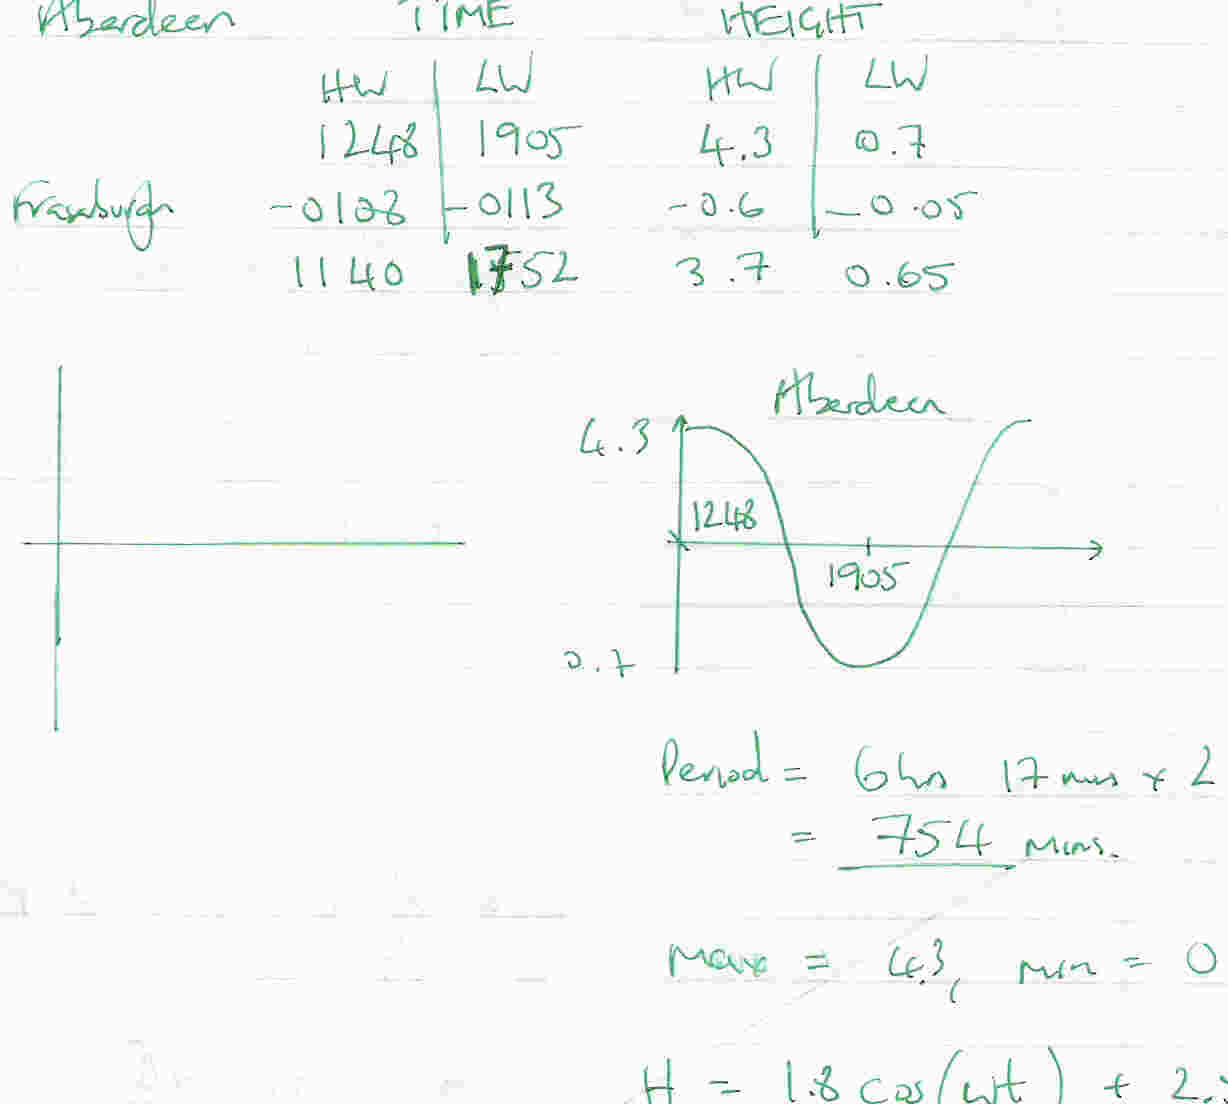 Aberdeen TIME HEIGHT
HW LW HW LW
1248 1905 4.3 0.7
-0108 -0113 -0.6 -0.05
1140 1752 3.7 0.65
Aberdeen
4.3
1248
1905
0.7
Period = 6 hrs 17 mins × 2
= 754 mins.
Max = 4.3, min = 0
H = 1.8 cos(wt) + 2.